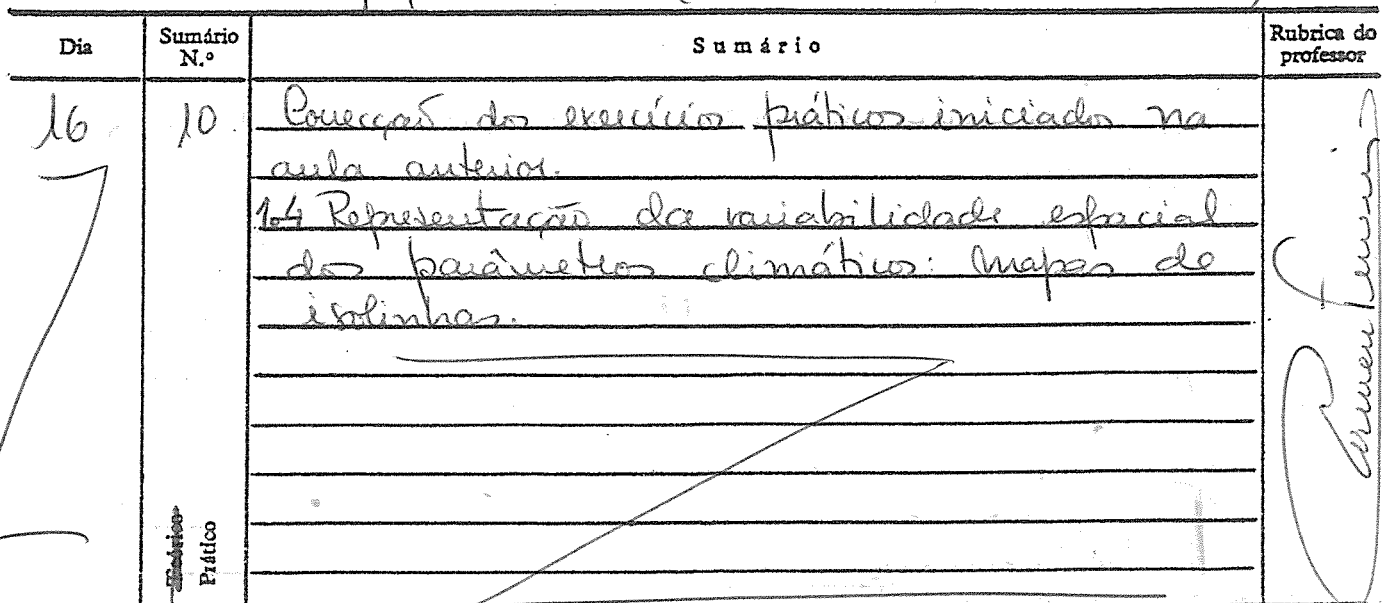 Dia
Sumário N.º
Sumário
Rubrica do professor
16
10
Correcção dos exercícios práticos iniciados na
aula anterior.
1.4 Representação da variabilidade espacial
dos parâmetros climáticos: mapas de
isolinhas.
Teórico
Prático